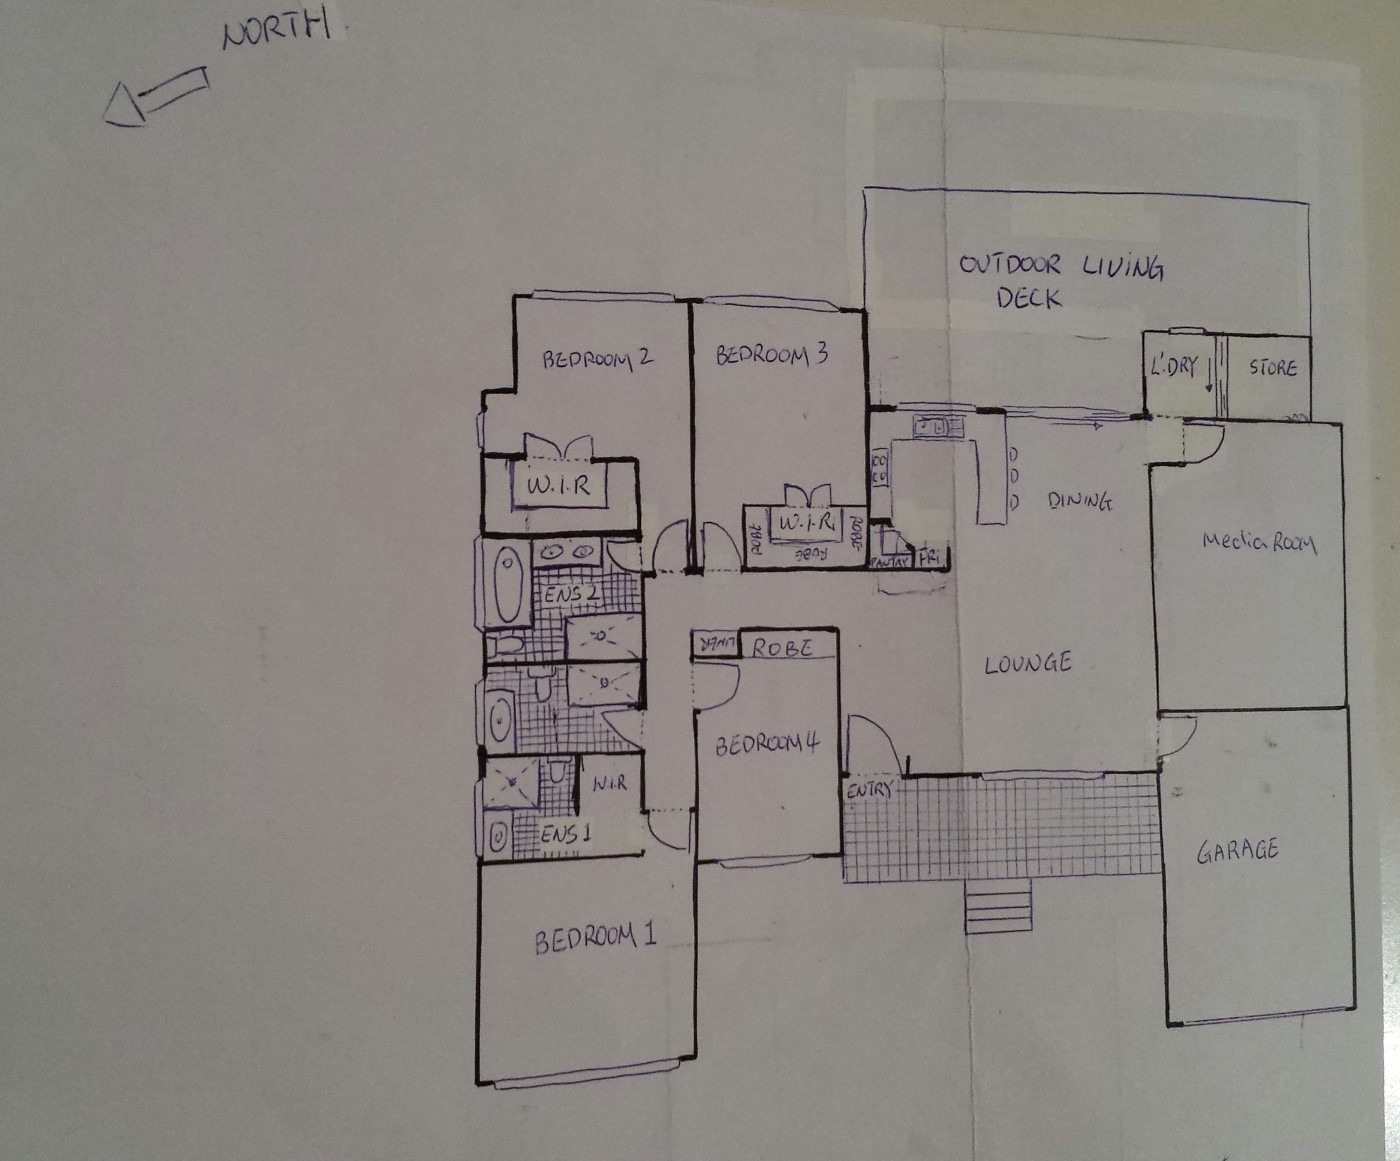 NORTH.
OUTDOOR LIVING
DECK
BEDROOM 2
BEDROOM 3
L'DRY
STORE
W.I.R
W.I.R.
DINING
ROBE
ROBE
ROBE
Media ROOM
PANTRY
FRI
ENS 2
LINEN
ROBE
LOUNGE
BEDROOM 4
W.I.R
ENTRY
ENS 1
GARAGE
BEDROOM 1